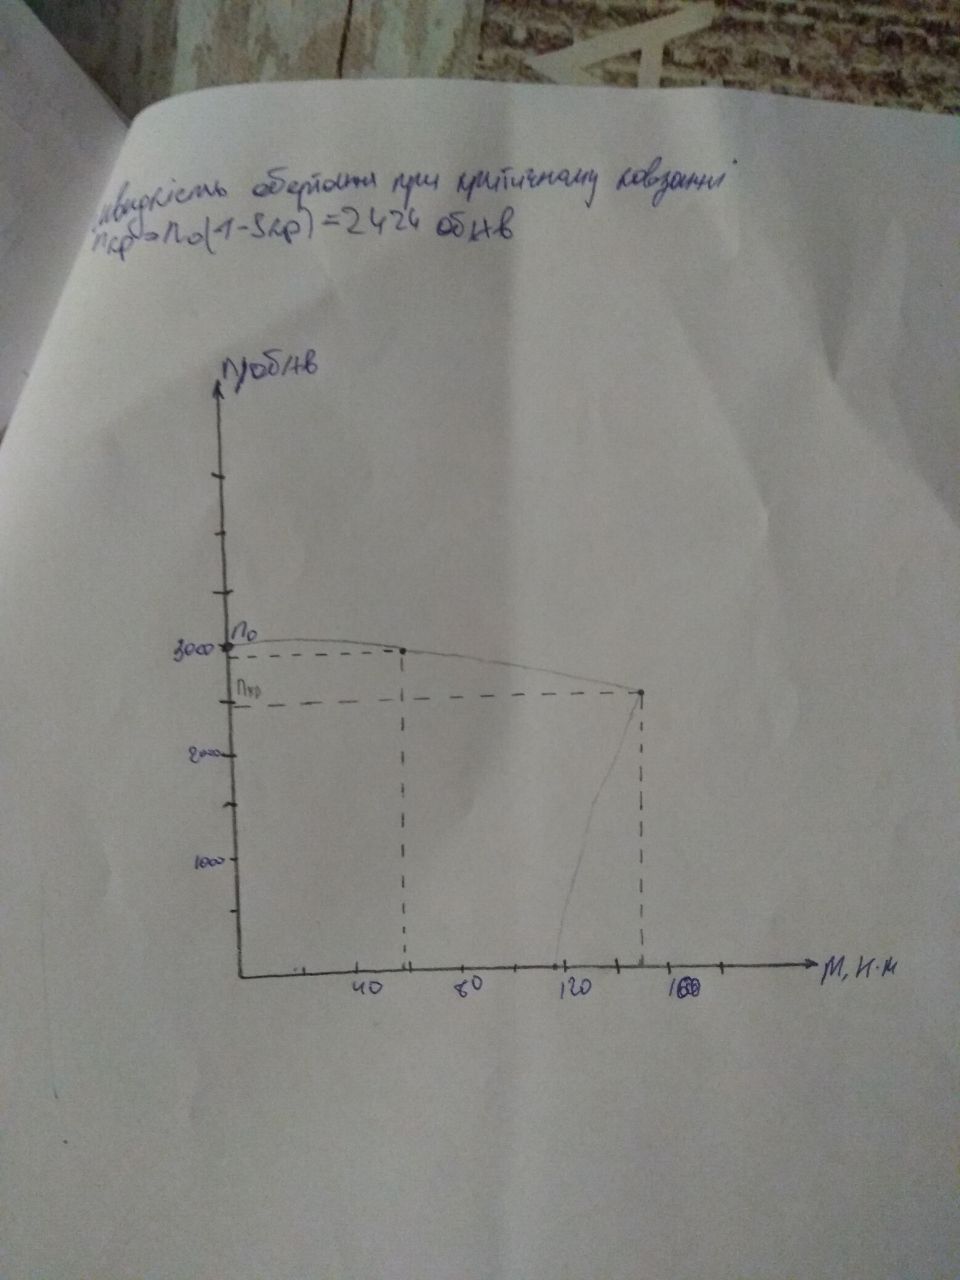 швидкість обертання при критичному ковзанні
nкр = n0(1-Sкр) = 2424 об/хв
n, об/хв
3000
n0
nкр
2000
1000
40
80
120
160
M, Н·м